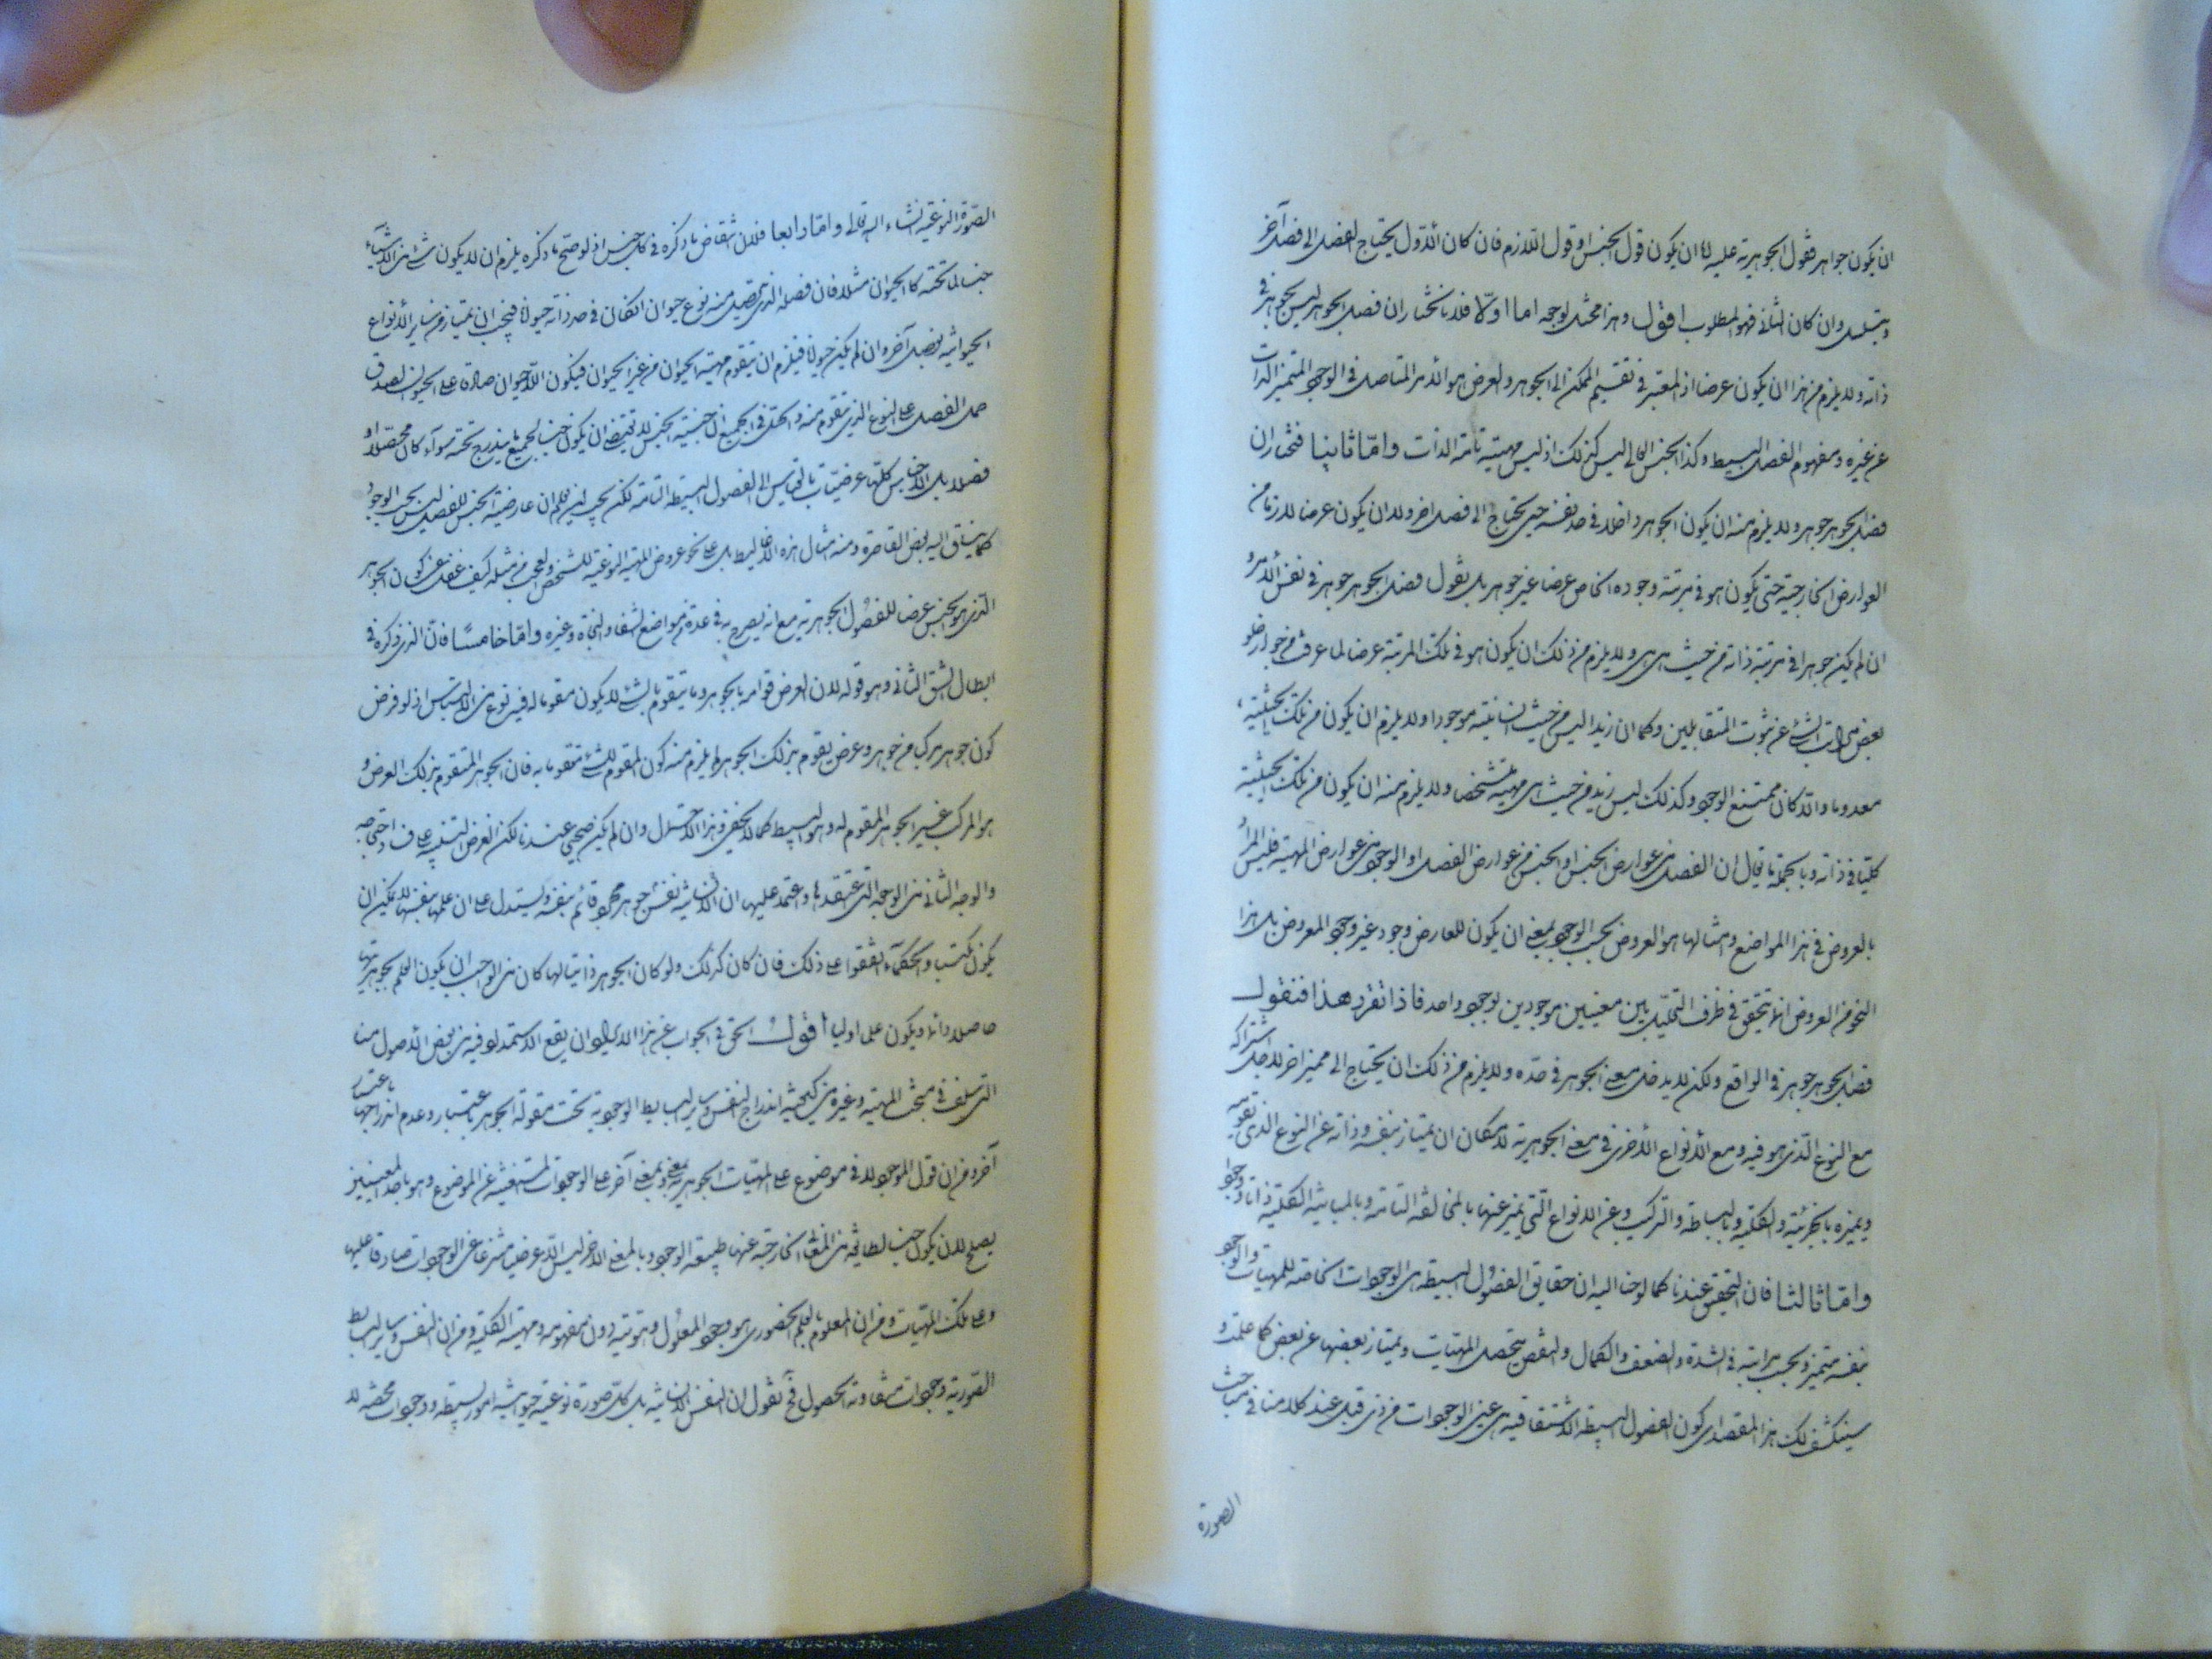 ان يكون جواهر فقول الجوهرية عليها اما ان يكون قول الجنس او قول اللازم فان كان الاول يحتاج الفصل الى فصل آخر
ويتسلسل وان كان الثانى فهو المطلوب اقول وهذا مختل لوجوه اما اولا فلانا نختار ان فصل الجوهر ليس بجوهر فى
ذاته ولا يلزم من هذا ان يكون عرضا اذ المعتبر فى تقسيم الممكن الى الجوهر والعرض هو الامر المتاصل فى الوجود المتميز الذات
عن غيره ومفهوم الفصل البسيط وكذا الجنس العالى ليس كذلك اذ ليس مهيته تامة الذات واما ثانيا فنختار ان
فصل الجوهر جوهر ولا يلزم منه ان يكون الجوهر داخلا فى حد نفسه حتى يحتاج الى فصل اخر ولا ان يكون عرضا لازما من
العوارض الخارجية حتى يكون هو فى مرتبة وجوده الخاص عرضا غير جوهر بل نقول فصل الجوهر جوهر فى نفس الامر و
ان لم يكن جوهرا فى مرتبة ذاته من حيث هى هى ولا يلزم من ذلك ان يكون هو فى تلك المرتبة عرضا لما عرف من جواز خلو
بعض مراتب الشئ عن ثبوت المتقابلين وكما ان زيدا ليس من حيث انسانيته موجودا ولا يلزم ان يكون من تلك الحيثية
معدوما والا كان ممتنع الوجود وكذلك ليس زيد من حيث هى مهيته متشخصا ولا يلزم منه ان يكون من تلك الحيثية
كليا فى ذاته وبالجملة ما يقال ان الفصل من عوارض الجنس او الجنس من عوارض الفصل او الوجود من عوارض المهية فليس المراد
بالعروض فى هذا المواضع وامثالها هو العروض بحسب الوجود بمعنى ان يكون للعارض وجود غير وجود المعروض بل هذا
النحو من العروض انما يتحقق فى ظرف التحليل بين معنيين موجودين بوجود واحد فاذا تقرر هذا فنقول
فصل الجوهر جوهر فى الواقع ولكن لا يدخل معنى الجوهر فى حده ولا يلزم من ذلك ان يحتاج الى مميز اخر لاجل اشتراكه
مع النوع الذى هو فيه ومع الانواع الاخرى فى معنى الجوهرية لامكان ان يمتاز بنفسه وذاته عن النوع الذى تقومه
ويميزه بالجزئية والكلية وبالبساطة والتركيب وعن الانواع التى يميز عنها بالمخالفة التامة وبالمباينة الكلية ذاتا ووجودا
واما ثالثا فان التحقيق عندنا كما لوحنا اليه ان حقايق الفصول البسيطة هى الوجودات الخاصة للمهيات والوجود
بنفسه متميز وبحسب مراتبه فى الشدة والضعف والكمال والنقص يتحصل المهيات ويمتاز بعضها عن بعض كما علمت و
سينكشف لك هذا المقصد اى كون الفصول البسيطة الاشتقاقية هى عين الوجودات من ذى قبل عند كلامنا فى مباحث
الصورة
الصورة النوعية انشاء الله تعالى واما رابعا فلانتقاض ما ذكره فى كل جنس اذ لو صح ما ذكره يلزم ان لا يكون شئ من الاشياء
جنسا لما تحته كالحيوان مثلا فان فصله الذى تحصيل منه نوع حيوان ان كان فى حد ذاته حيوانا فيجب ان يمتاز من ساير الانواع
الحيوانية بفصل آخر وان لم يكن حيوانا فيلزم ان يتقوم مهية الحيوان من غير الحيوان فيكون اللاحيوان صادقا على الحيوان لصدق
حمل الفصل على النوع الذى يتقوم منه والحل فى الجميع ان جنسية الجنس لا تقتضى ان يكون جنسا لجميع ما يندرج تحته سوآء كان محصلا او
فصلا بل الاجناس كلها عرضيات بالقياس الى الفصول البسيطة التامة لكن يجب ان يعلم ان عارضية الجنس للفصل ليس بحسب الوجود
كما ينساق اليه بعض القاصرة ومنه امثال هذه الاغاليط بل على نحو عروض المهية النوعية للشخص والعجب من مثله كيف غفل عن كون الجوهر
الذى هو الجنس عرضا للفصول الجوهرية مع انه يصرح به فى عدة من مواضع الشفا والنجاة وغيره واما خامسا فان الذى ذكره فى
ابطال الشق الثانى وهو قوله لان العرض قوامه بالجوهر وما يتقوم بالشئ لا يكون مقوما له فيه نوع من الالتباس اذ لو فرض
كون جوهر مركب من جوهر وعرض يقوم بذلك الجوهر لم يلزم منه كون المقوم للشئ متقوما به فان الجوهر المتقوم بذلك العرض و
هو المركب غير الجوهر المقوم له وهو البسيط كما لا يخفى وهذا الاحتمال وان لم يكن صحيحا عندنا لكن الغرض التنبيه على فساد احتجاجه
والوجه الثانى من الوجوه التى اعتقدها واعتمد عليها ان الانسانية نفس جوهر مجرد قائم بنفسه ويستدل على ان علمها بنفسها لا يمكن ان
يكون مكتسبا والحكمآء اتفقوا على ذلك فان كان كذلك ولو كان الجوهر ذاتيا لها كان من الواجب ان يكون العلم بجوهريتها
حاصلا دائما ويكون علما اوليا اقول الحق فى الجواب عن هذا الاشكال ان يقع الاستمداد فيه من بعض الاصول منا
التى سلفت فى مبحث المهية وغيره من كيفية اندراج النفس وساير البسايط الوجودية تحت مقولة الجوهر باعتبار وعدم اندراجها باعتبار
آخر ومن ان قول الموجود لا فى موضوع على المهيات الجوهرية بمعنى وبمعنى آخر على الوجودات المستغنية عن الموضوع وهو باحد المعنيين
يصلح لان يكون جنسا لطائفة من المعانى الخارجة عنها طبيعة الوجود وبالمعنى الاخر ليس الا عرضيا منتزعا عن الوجودات صادقا عليها
وعلى تلك المهيات ومن ان المعلوم بالعلم الحضورى هو وجود المعلول وهويته دون مفهومه ومهيته الكلية ومن ان النفس وساير البسايط
الصورية وجودات متفاوتة الحصول فح نقول ان النفس الانسانية بل كل صورة نوعية حيوانية امور بسيطة ووجودات محضة لا